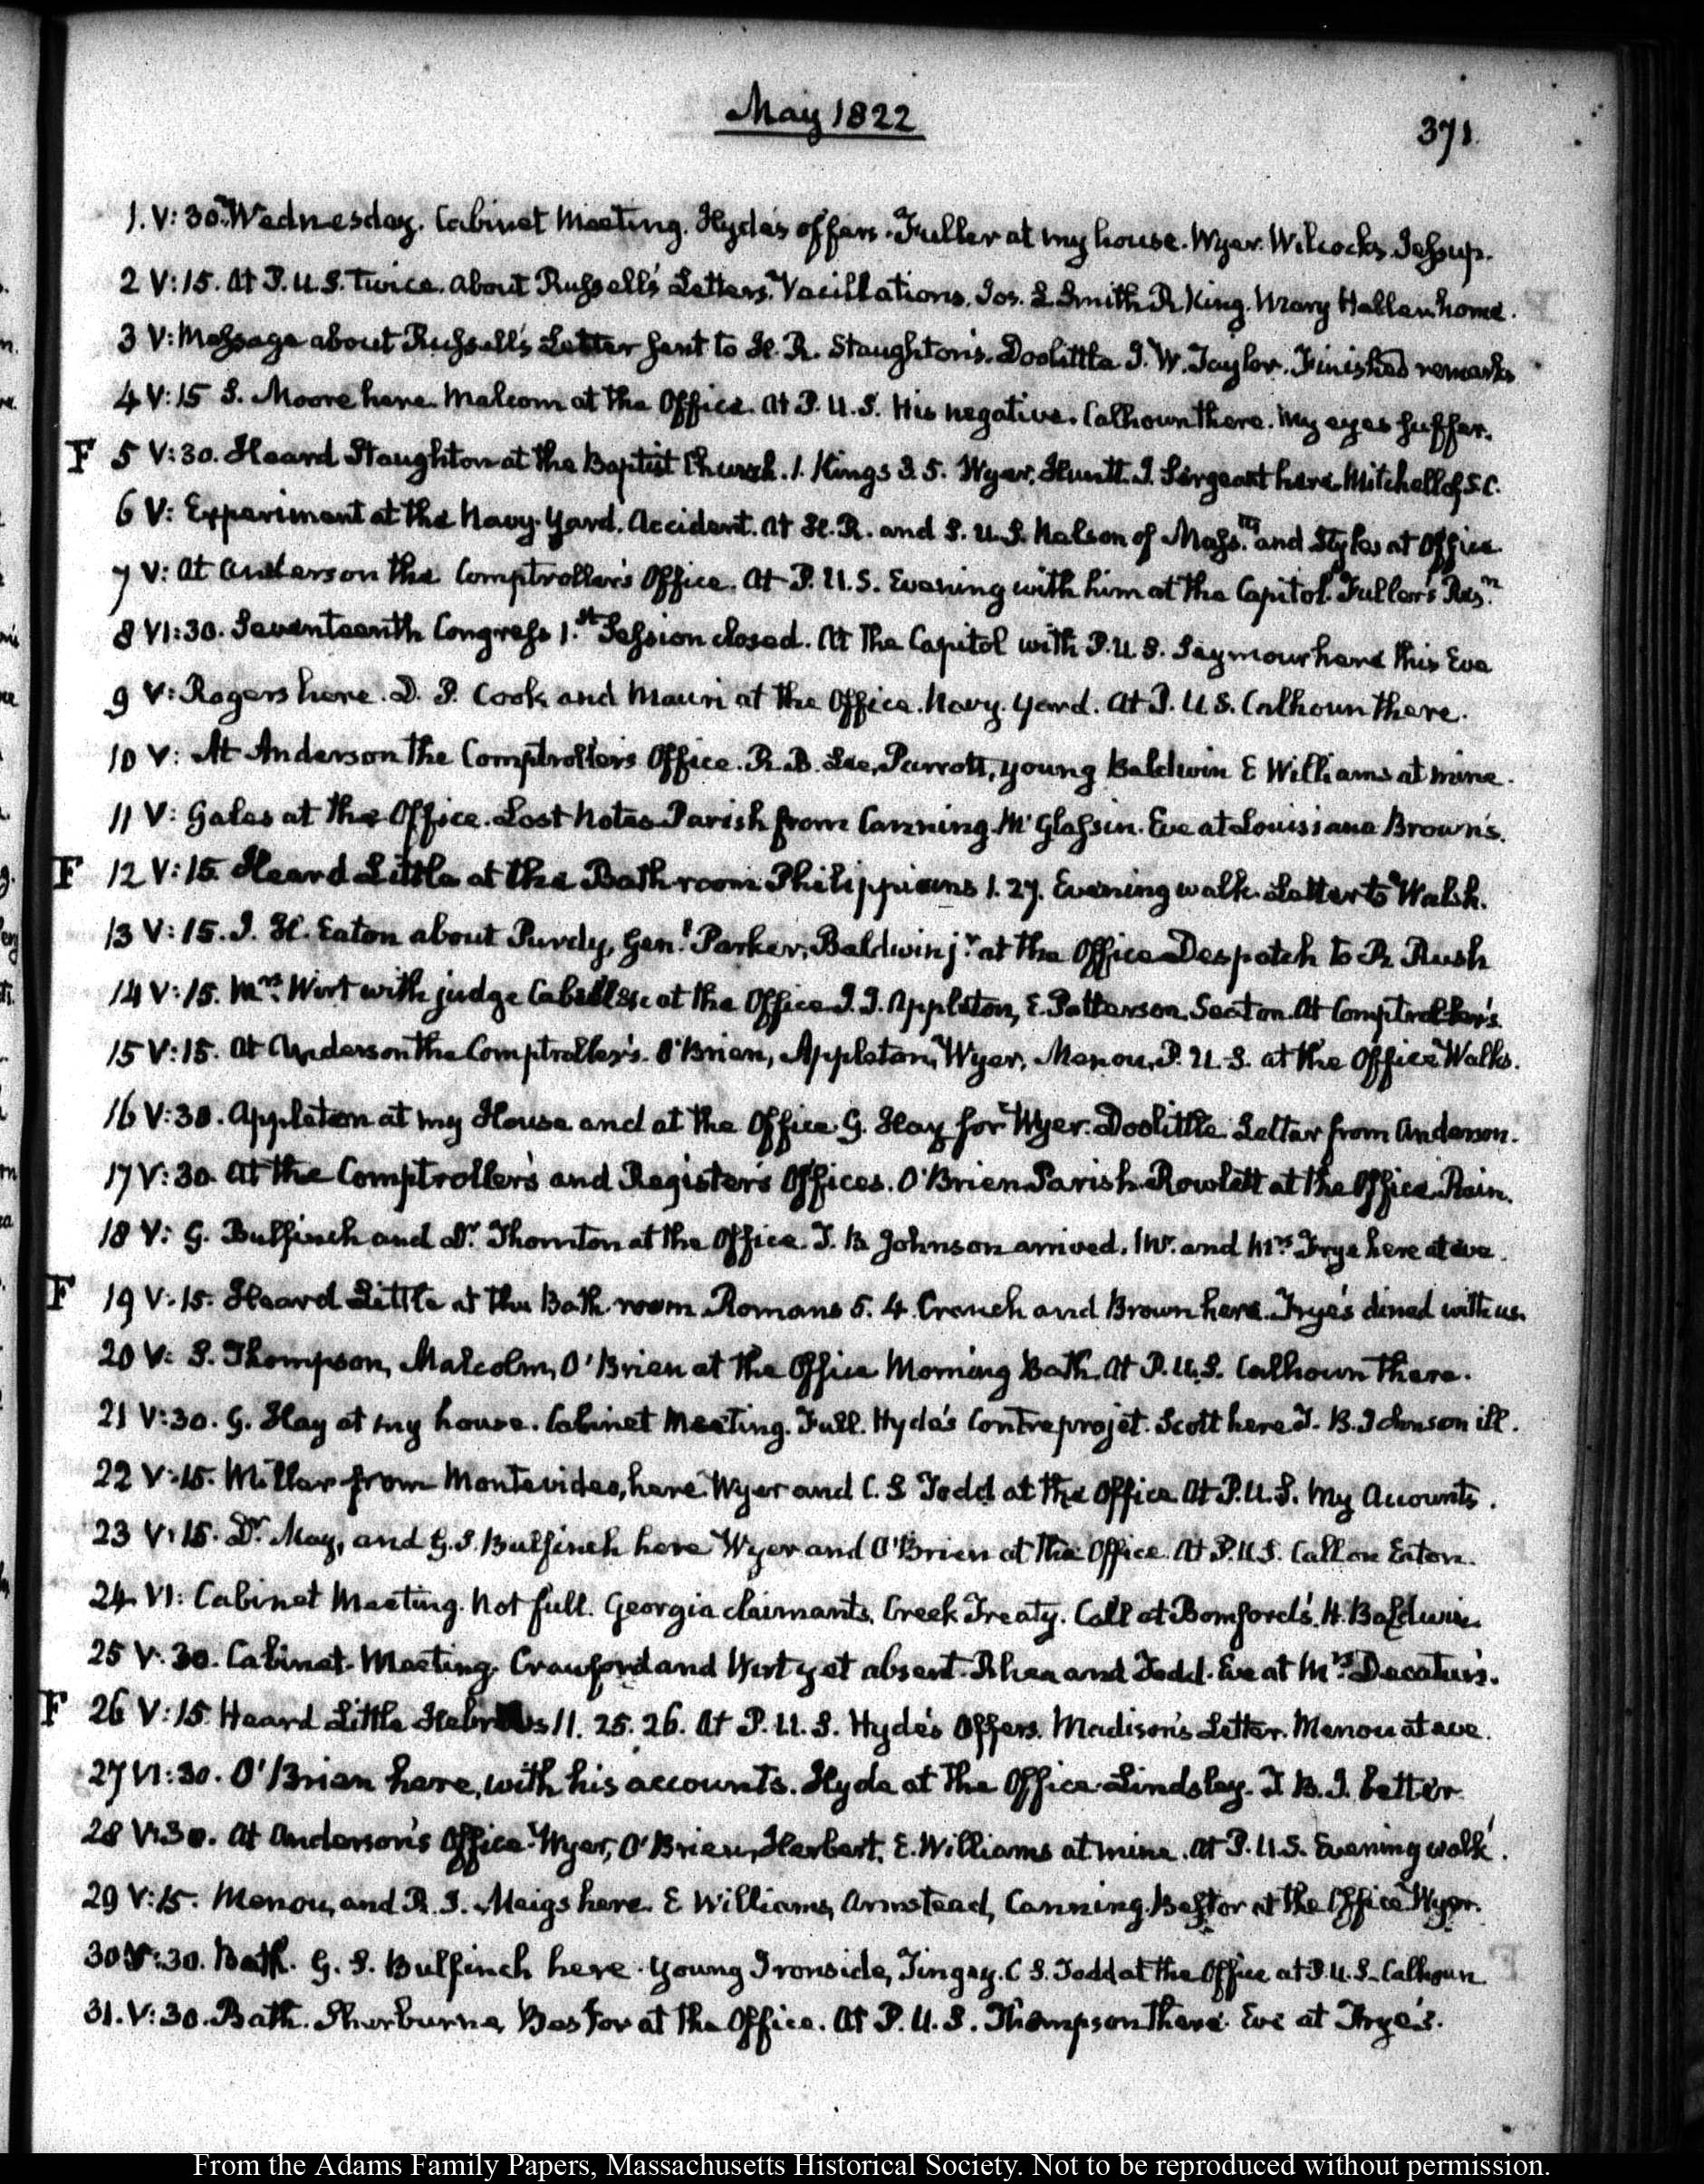 May 1822
371.
1. V:30. Wednesday. Cabinet Meeting. Hyde's offers. Fuller at my house. Wyer. Wilcocks. Jessup.
2 V:15. At P.U.S. twice. about Russell's Letters. Vacillations. Jos. L. Smith R King. Mary Hellen home.
3 V: Message about Russell's Letter sent to H.R. Staughton's. Doolittle. J. W. Taylor. Finished remarks
4 V:15 S. Moore here. Malcom at the Office. At P.U.S. His negative. Calhoun there. My eyes suffer.
F 5 V:30. Heard Staughton at the Baptist Church. 1. Kings 3. 5. Wyer, Huntt. J. Sergeant here. Mitchell of S.C.
6 V: Experiment at the Navy-Yard. Accident. At H.R. and S.U.S. Nelson of Mass.tts and Styles at Office
7 V: At Anderson the Comptroller's Office. At P.U.S. Evening with him at the Capitol. Fuller's Res.n
8 VI:30. Seventeenth Congress 1.st Session closed. At the Capitol with P.U.S. Seymour here this Eve
9 V: Rogers here. D. P. Cook and Mauri at the Office. Navy-Yard. At P.U.S. Calhoun there.
10 V: At Anderson the Comptroller's Office. R. B. Lee, Parrott, young Baldwin E Williams at mine.
11 V: Gales at the Office. Lost Notes Parish from Canning. Mc Glassin. Eve at Louisiana Brown's.
F 12 V:15. Heard Little at the Bath room Philippians 1. 27. Evening walk. Letter to Walsh.
13 V:15. J. H. Eaton about Purdy, Gen.l Parker, Baldwin j.r at the Office Despatch to R Rush
14 V:15. Mrs. Wirt with judge at the Office J. J. Appleton, E. Patterson. Seaton. At Comptroller's
15 V:15. At Anderson the Comptroller's. O'Brien, Appleton, Wyer, Menou, P.U.S. at the Office Walks.
16 V:30. Appleton at my House and at the Office G. Hay for Wyer. Doolittle Letter from Anderson.
17 V:30. At the Comptroller's and Register's Offices. O'Brien Parish Rowlett at the Office. Rain.
18 V: G. Bulfinch and Dr. Thornton at the Office. T. B. Johnson arrived. Mr. and Mrs. Frye here at eve.
F 19 V:15. Heard Little at the Bath room Romans 5. 4. Cranch and Brown here. Frye's dined with us.
20 V: S. Thompson, Malcolm, O'Brien at the Office Morning Bath. At P.U.S. Calhoun there.
21 V:30. G. Hay at my house. Cabinet Meeting. Full. Hyde's Contreprojet. Scott here T. B. Johnson ill.
22 V:15. Miller from Montevideo, here Wyer and C. S Todd at the Office At P.U.S. My Accounts.
23 V:15. Dr. May, and G. S. Bulfinch here Wyer and O'Brien at the Office. At P.U.S. Call on Eaton.
24 VI: Cabinet Meeting. Not full. Georgia claimants. Creek Treaty. Call at Bomford's. H. Baldwin
25 V:30. Cabinet Meeting. Crawford and Wirt yet absent. Rhea and Todd. Eve at Mrs. Decatur's.
F 26 V:15. Heard Little Hebrews 11. 25. 26. At P.U.S. Hyde's Offers. Madison's Letter. Menou at eve.
27 VI:30. O'Brien here, with his accounts. Hyde at the Office Lindsley. T. B. J. better
28 V:30. At Anderson's Office. Wyer, O'Brien, Herbert, E. Williams at mine. At P.U.S. Evening walk.
29 V:15. Menou, and R. J. Meigs here. E Williams, Armstead, Canning. Bestor at the Office Wyer.
30 V:30. Bath. G. S. Bulfinch here. young Ironside, Tingey. C S. Todd at the Office at P.U.S. Calhoun
31. V:30. Bath. Sherburne, Bestor at the Office. At P.U.S. Thompson there. Eve at Frye's.
From the Adams Family Papers, Massachusetts Historical Society. Not to be reproduced without permission.